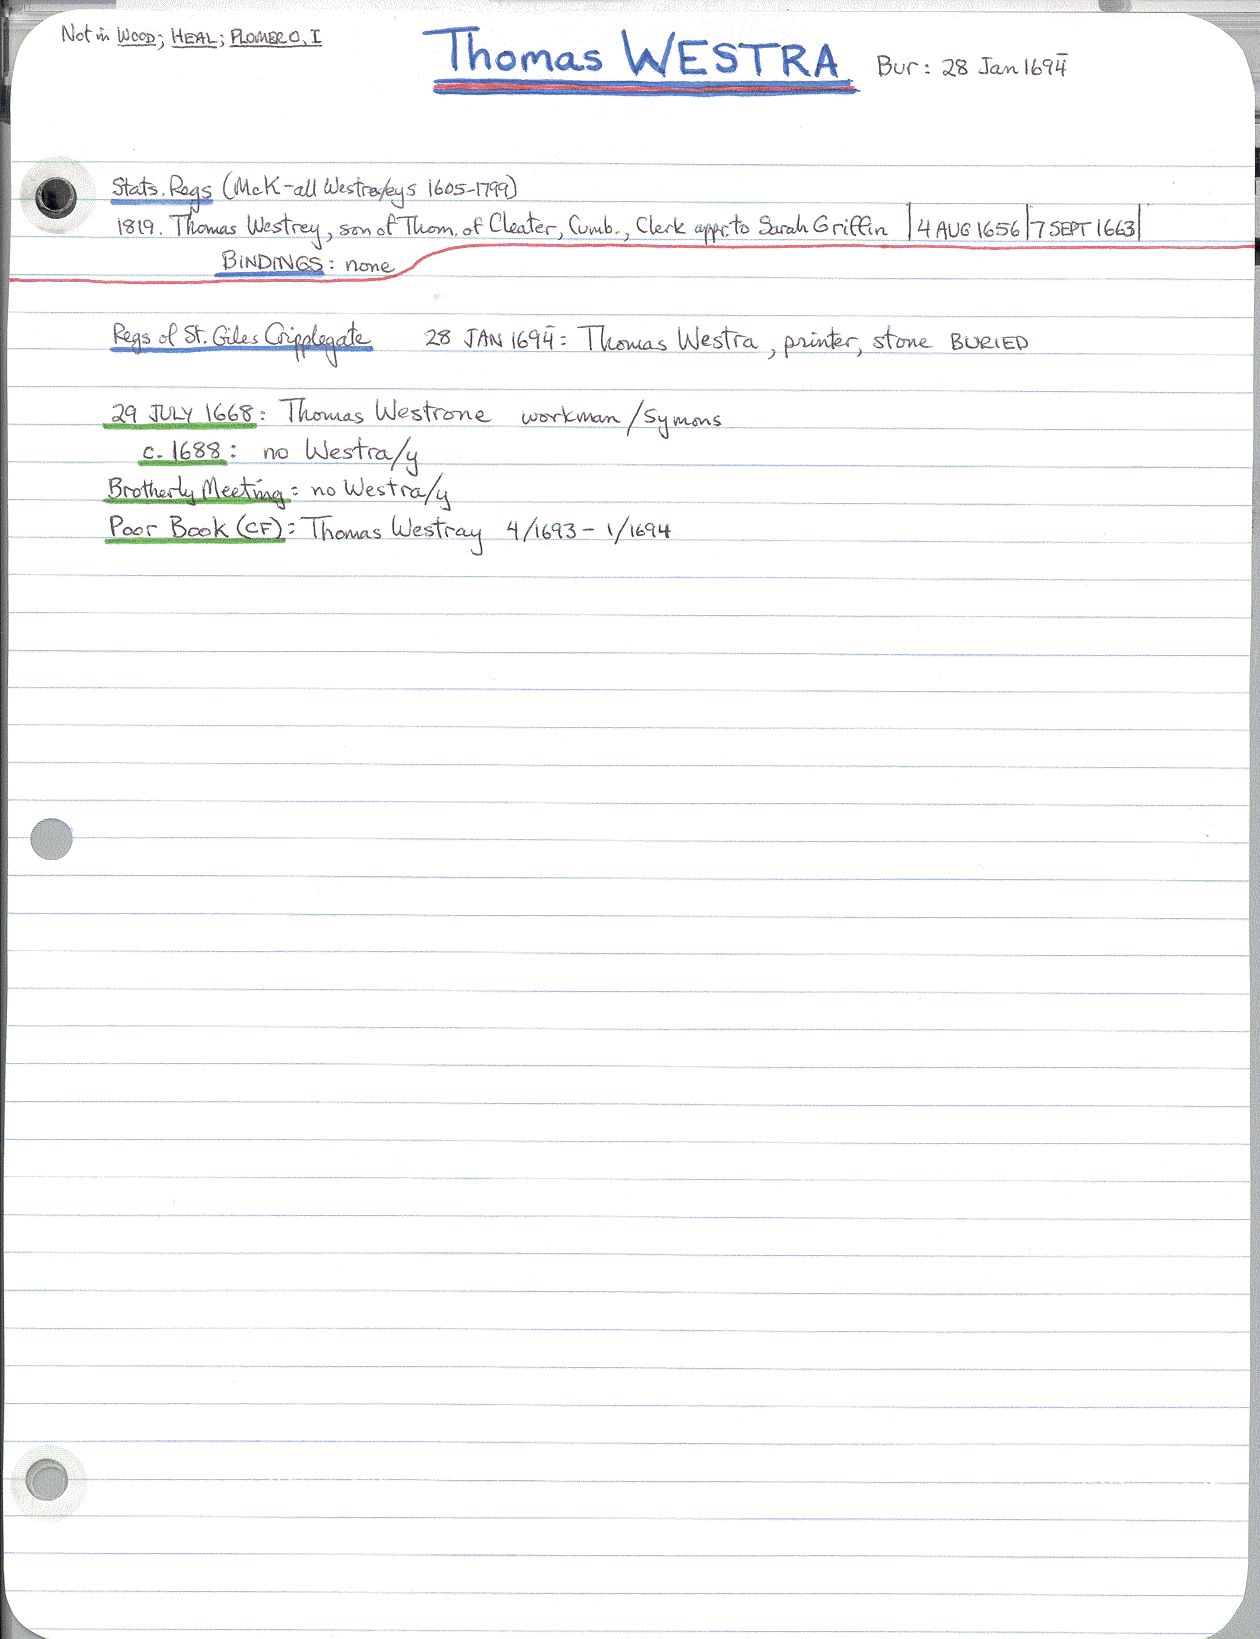 Not in WOOD; HEAL; PLOMER O, I
Thomas WESTRA Bur: 28 Jan 1694̄
Stats. Regs (McK-all Westra/eys 1605-1799)
1819. Thomas Westrey, son of Thom. of Cleater, Cumb., Clerk appr. to Sarah Griffin | 4 AUG 1656 | 7 SEPT 1663 |
BINDINGS: none
Regs of St. Giles Cripplegate 28 JAN 1694̄: Thomas Westra, printer, stone BURIED
29 JULY 1668: Thomas Westrone workman/Symons
c. 1688: no Westra/y
Brotherly Meeting: no Westra/y
Poor Book (CF): Thomas Westray 4/1693 - 1/1694